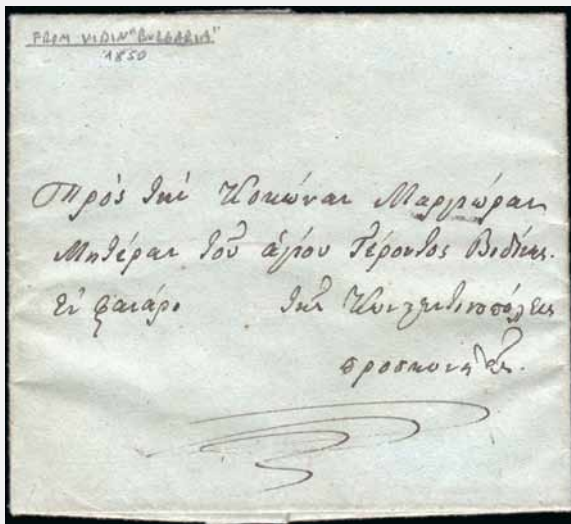 FROM VIDIN "BULGARIA"
1850
Πρὸς τὴν Κοκώναν Μαργιώραν
Μητέραν τοῦ ἁγίου Γέροντος Βιδίνης.
Εἰς φανάρι τῆς Κωνσταντινουπόλεως
προσκυνητῶς.